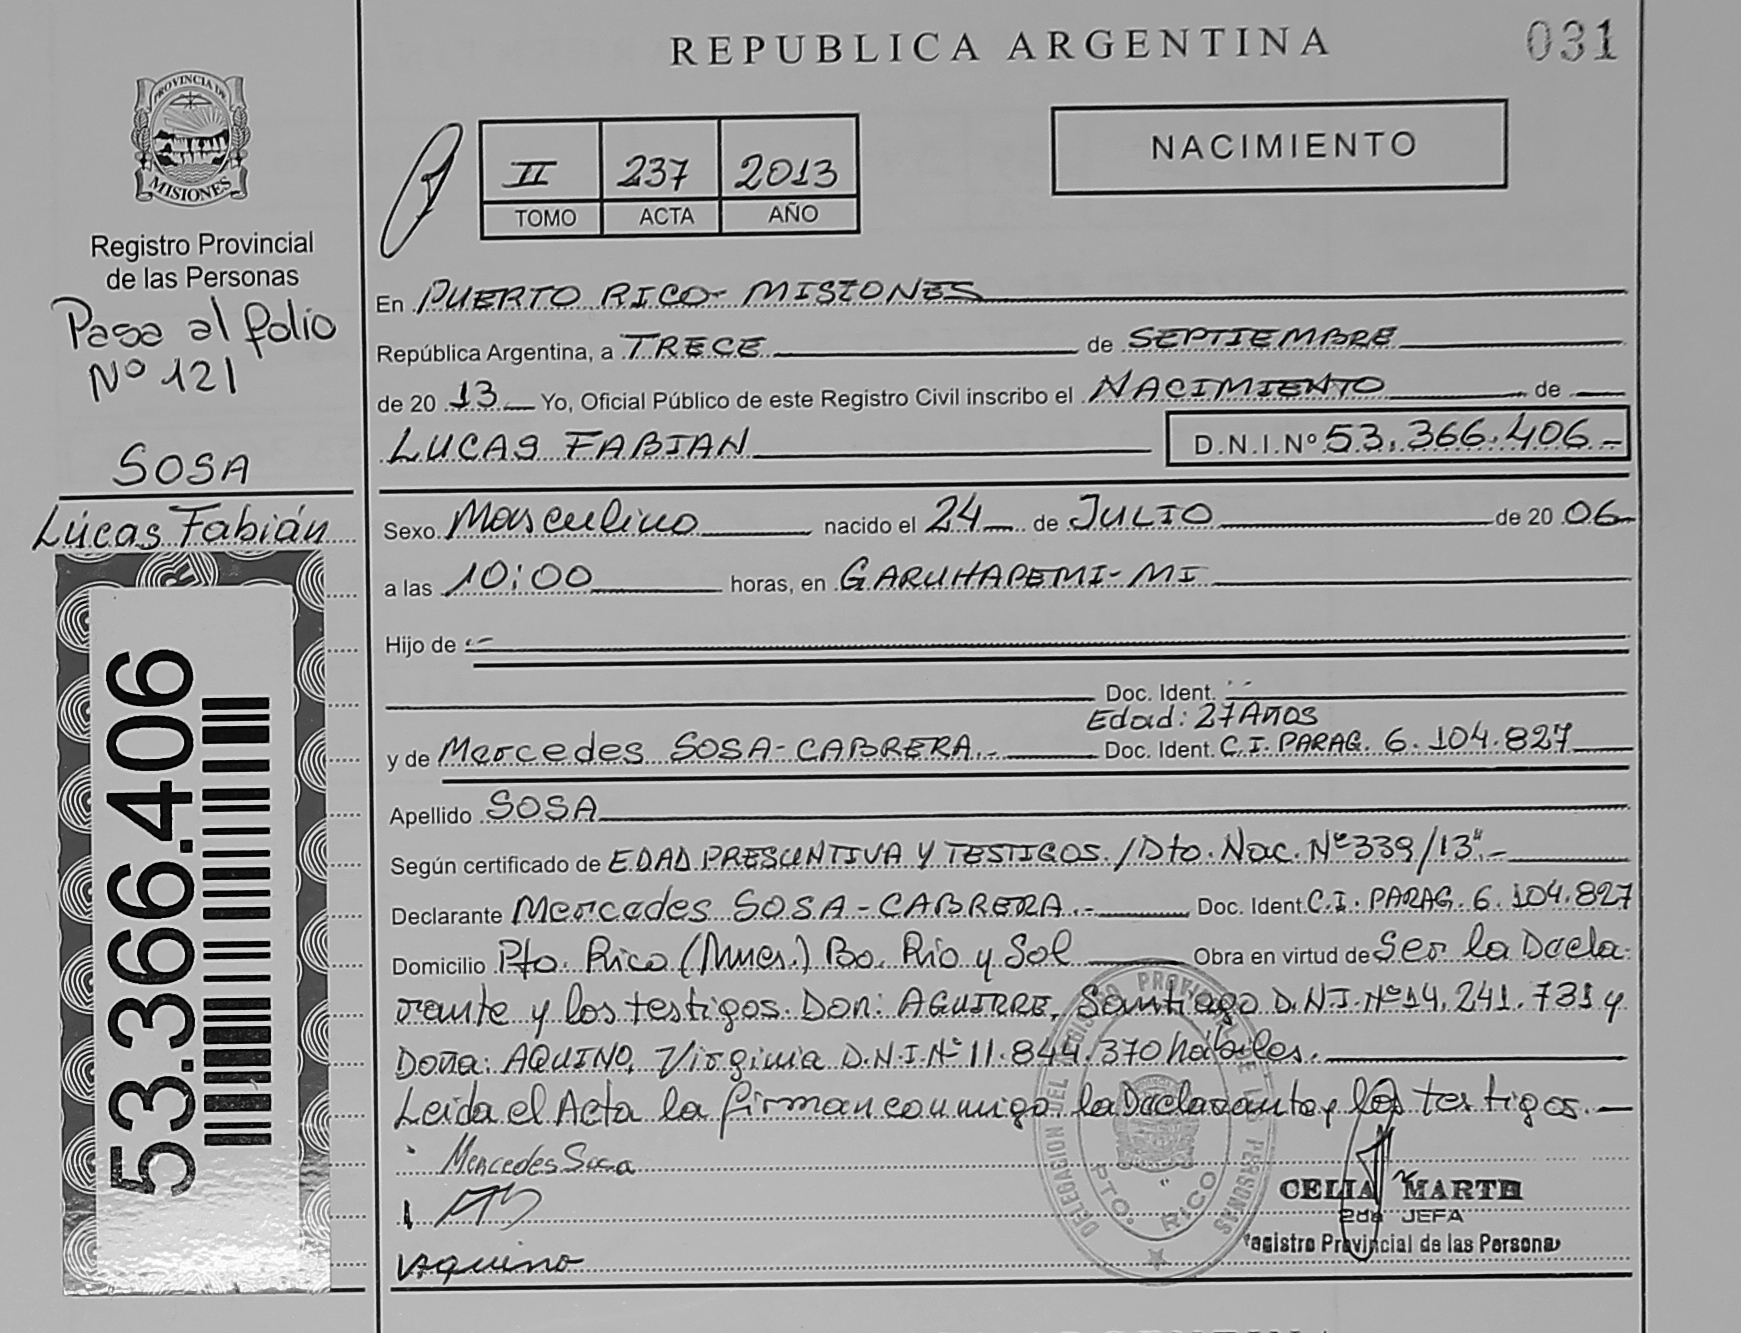 REPUBLICA ARGENTINA
031
PROVINCIA DE
MISIONES
Registro Provincial
de las Personas
Pasa al folio
Nº 121
SOSA
Lúcas Fabián
53.366.406
II 237 2013
TOMO ACTA AÑO
NACIMIENTO
En PUERTO RICO- MISIONES
República Argentina, a TRECE de SEPTIEMBRE
de 20 13 Yo, Oficial Público de este Registro Civil inscribo el NACIMIENTO de
LUCAS FABIAN D.N.I.Nº 53.366.406.-
Sexo Masculino nacido el 24 de JULIO de 20 06
a las 10:00 horas, en GARUHAPEMI-MI
Hijo de
Doc. Ident.
Edad: 27 Años
y de Mercedes SOSA-CABRERA.- Doc. Ident. C.I. PARAG. 6.104.827
Apellido SOSA
Según certificado de EDAD PRESUNTIVA Y TESTIGOS./Dto. Nac. Nº 339/13".-
Declarante Mercedes SOSA-CABRERA.- Doc. Ident. C.I. PARAG. 6.104.827
Domicilio Pto. Rico (Mnes.) Bo. Rio y Sol Obra en virtud de Ser la Decla-
rante y los testigos. Don: AGUIRRE, Santiago D.N.I. Nº 14.241.731 y
Doña: AQUINO, Virginia D.N.I. Nº 11.844.370 hábiles.
Leida el Acta la firman conmigo la Declarante y los testigos.
Mercedes Sosa
Aquino
DELEGACION DEL REGISTRO PROVINCIAL DE LAS PERSONAS
PTO. RICO
CELIA MARTH
2da JEFA
Registro Provincial de las Personas